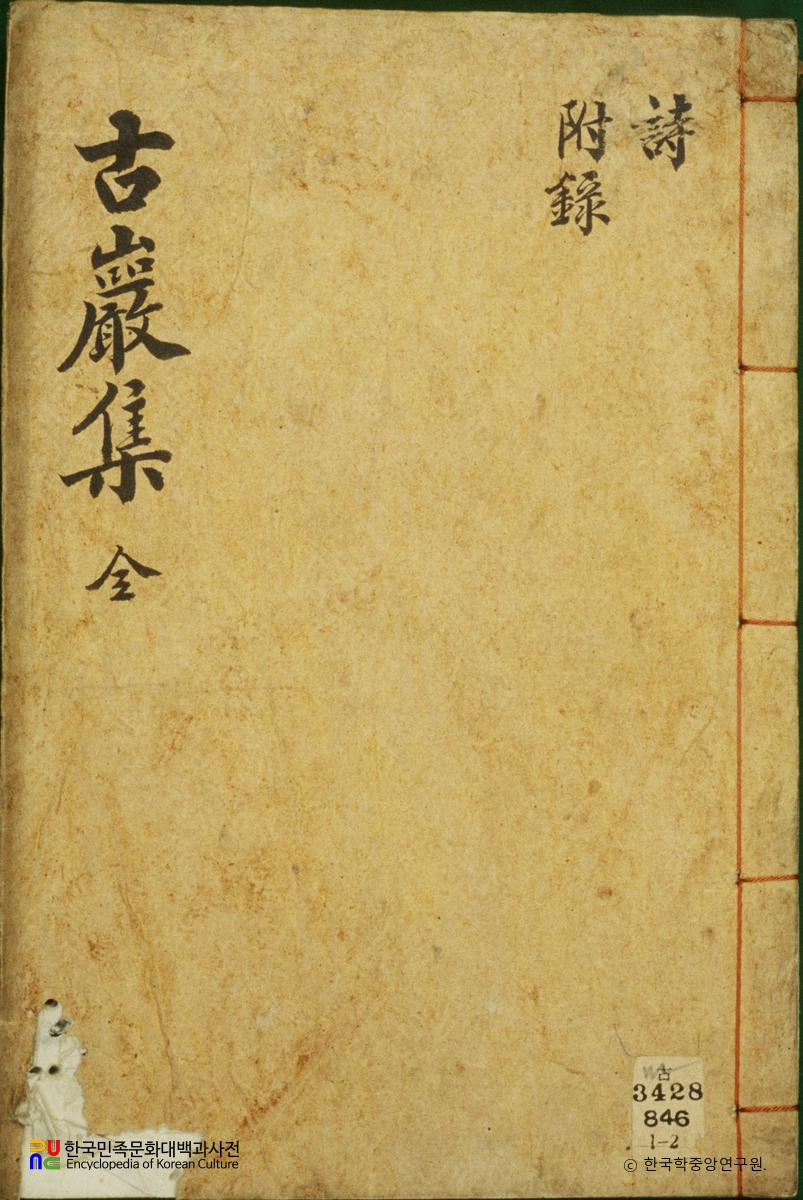 詩
附錄
古巖集 全
古
3428
846
1-2
한국민족문화대백과사전
Encyclopedia of Korean Culture
ⓒ 한국학중앙연구원.